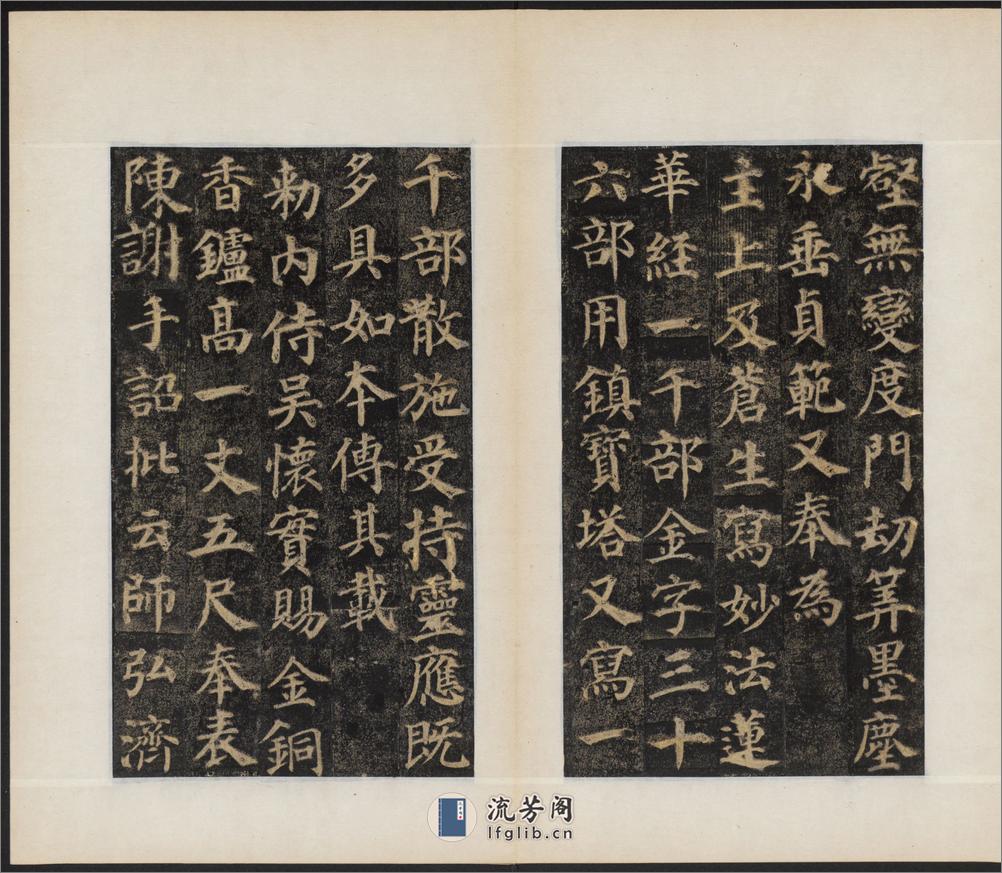 壑無變度門劫筭墨塵
永垂貞範又奉為
主上及蒼生寫妙法蓮
華經一千部金字三十
六部用鎮寶塔又寫一
千部散施受持靈應既
多具如本傳其載
勑内侍吳懷實賜金銅
香鑪高一丈五尺奉表
陳謝手詔批云師弘濟
流芳阁
lfglib.cn